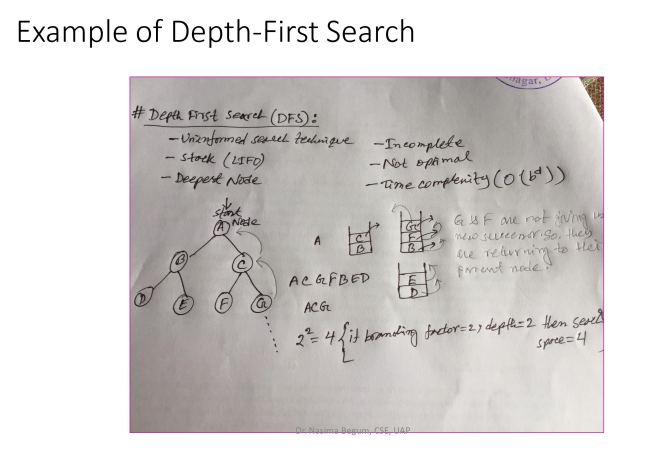 Example of Depth-First Search
nagar,
# Depth First Search (DFS):
- Uninformed search technique
- Stack (LIFO)
- Deepest Node
- Incomplete
- Not optimal
- Time complexity (O(b^d))
start
Node
A
B
C
D
E
F
G
A
C
B
G
F
B
G & F are not giving
new successor. So, they
are returning to their
parent node.
A C G F B E D
E
D
ACG
2² = 4 { if branding factor=2, depth=2 then
space=4
Dr. Nasima Begum, CSE, UAP